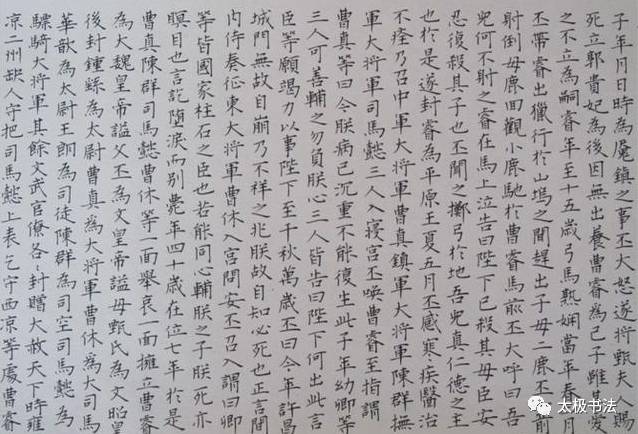 子年月日時為魘鎮之事丕大怒遂將甄夫人賜
死立郭貴妃為後因無出養曹睿為己子雖甚愛
之不立為嗣睿年至十五歲弓馬熟嫻當年春二月
丕帶睿出獵行於山塢之間趕出子母二鹿丕一箭
射倒母鹿回觀小鹿馳於曹睿馬前丕大呼曰吾
兒何不射之睿在馬上泣告曰陛下已殺其母臣安
忍復殺其子也丕聞之擲弓於地吾兒真仁德之主
也於是遂封睿為平原王夏五月丕感寒疾醫治
不痊乃召中軍大將軍曹真鎮軍大將軍陳群撫
軍大將軍司馬懿三人入寢宮丕喚曹睿至指謂
曹真等曰今朕病已沉重不能復生此子年幼卿等
三人可善輔之勿負朕心三人皆告曰陛下何出此言
臣等願竭力以事陛下至千秋萬歲丕曰今年許昌
城門無故自崩乃不祥之兆朕故自知必死也正言間
內侍奏征東大將軍曹休入宮問安丕召入謂曰卿
等皆國家柱石之臣也若能同心輔朕之子朕死亦
瞑目也言訖墮淚而別薨年四十歲在位七年於是
曹真陳群司馬懿曹休等一面舉哀一面擁立曹睿
為大魏皇帝謚父丕為文皇帝謚母甄氏為文昭皇
後封鍾繇為太尉曹真為大將軍曹休為大司馬
華歆為太尉王朗為司徒陳群為司空司馬懿為
驃騎大將軍其餘文武官僚各々封贈大赦天下時雍
涼二州缺人守把司馬懿上表乞守西涼等處曹睿
太极书法